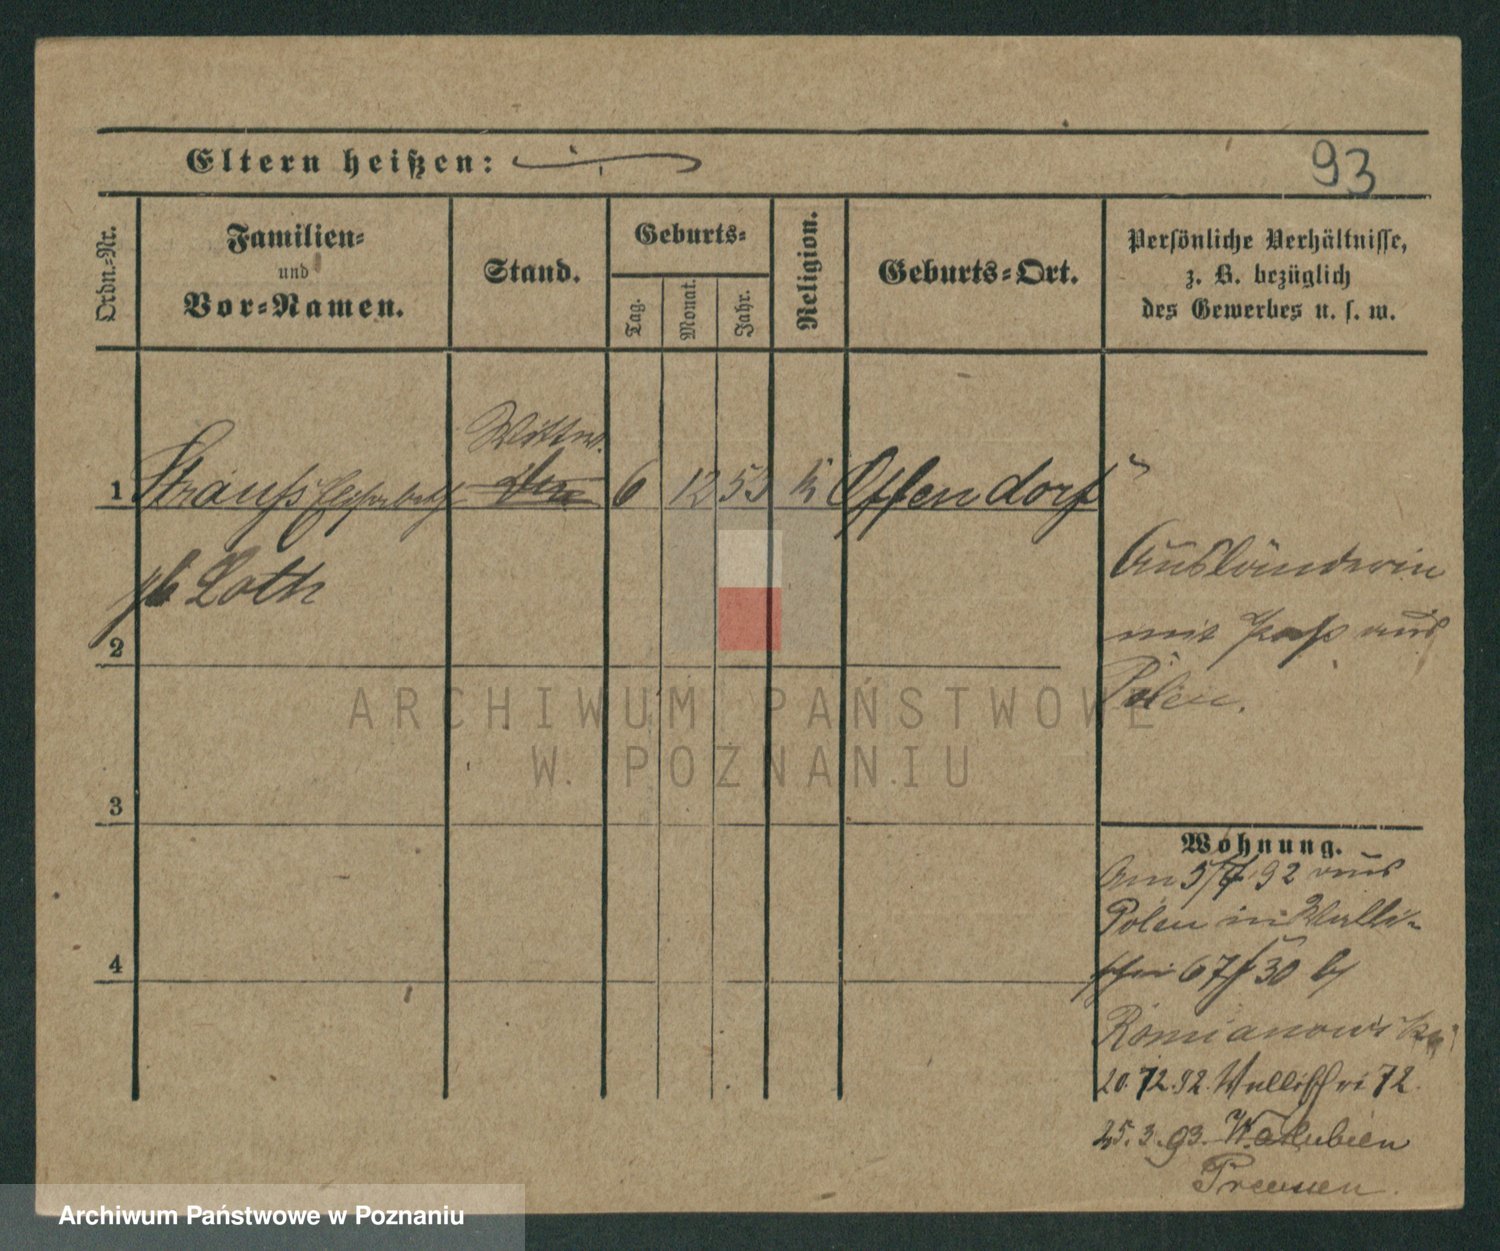 Eltern heißen:
93
Ordn.-Nr.
Familien-
und
Vor-Namen.
Stand.
Geburts-
Tag.
Monat.
Jahr.
Religion.
Geburts-Ort.
Persönliche Verhältnisse,
z. B. bezüglich
des Gewerbes u. s. w.
Wittwe.
1 Strauß Elisabeth 6 12 53 k Offendorf
gb Loth
2
Ausländerin
mit Paß aus
Polen.
ARCHIWUM PAŃSTWOWE
W POZNANIU
3
Wohnung.
Am 5/4 92 aus
Polen in Walli-
schei 67/30 b/
Romianowski
4
20.12.92. Wallischei 72.
25.3.93. Wakubien
Preussen.
Archiwum Państwowe w Poznaniu